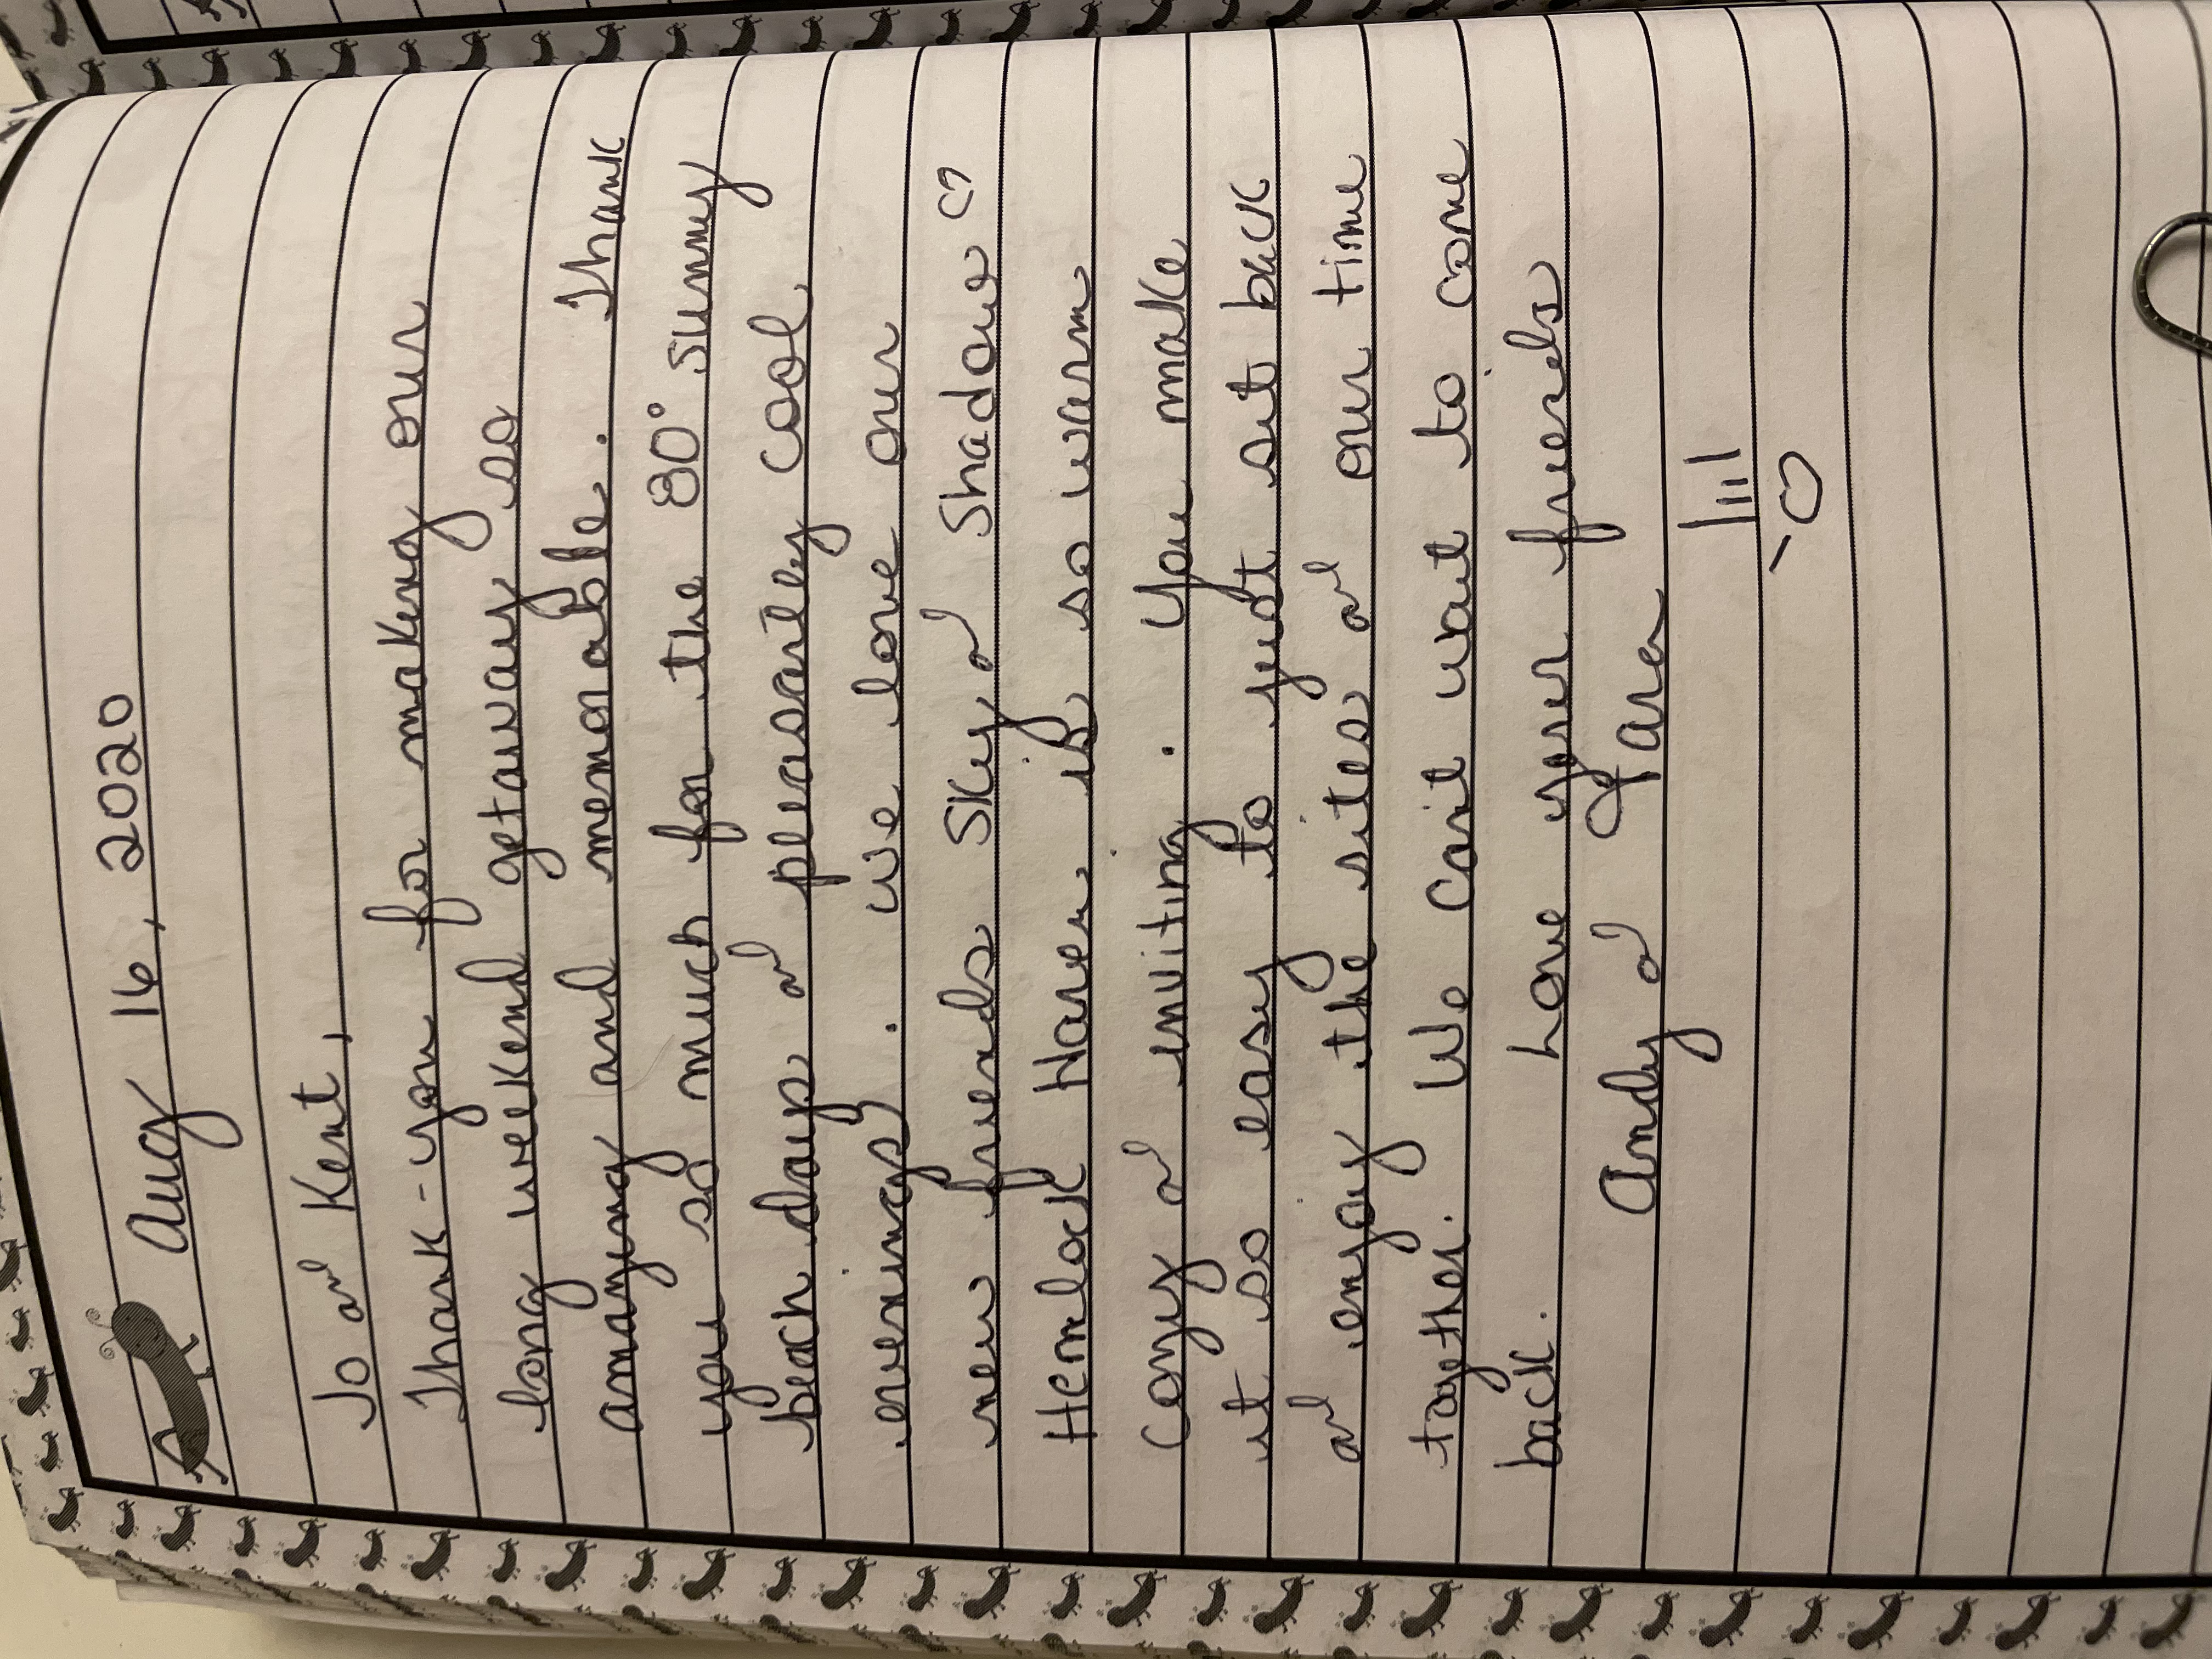 Aug 16, 2020
Jo & Kent,
Thank-you for making our
long weekend getaway so
amazing and memorable. Thank
you so much for the 80° sunny
beach days & pleasantley cool
evenings). We love our
new friends Sky & Shadow ♡
Hemlock Haven is so warm
cozy & inviting. You make
it so easy to just sit back
& enjoy the sites & our time
together. We can't wait to come
back. Love your friends
Andy & Tara